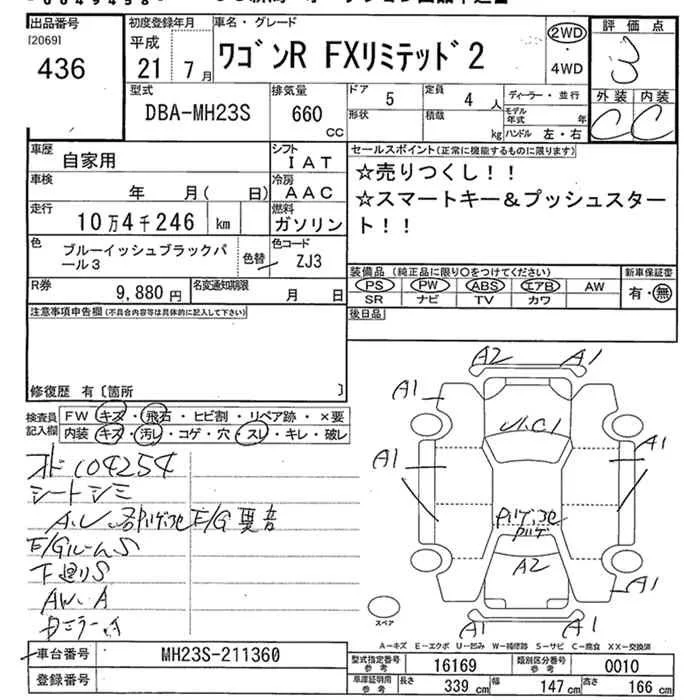 出品番号 初度登録年月 車名・グレード 評価点
[2069] 436 平成 21年 7月 ワゴンR FXリミテッド2 2WD・4WD 3
型式 排気量 ドア 5 定員 4人 ディーラー・並行 外装 内装
DBA-MH23S 660 CC 形状 積載 kg モデル年式 年 ハンドル 左・右 C C
車歴 自家用 シフト IAT セールスポイント(正常に機能するものに限ります)
車検 年 月( 日) 冷房 AAC ☆売りつくし!!
走行 10万4千246 km 燃料 ガソリン ☆スマートキー&プッシュスタート!!
色 ブルーイッシュブラックパール3 色替 色コード ZJ3
装備品(純正品に限り○をつけてください) 新車保証書
PS PW ABS エアB AW 有・無
SR ナビ TV カワ
R券 9,880円 名変通知期限 月 日
注意事項申告欄(不具合内容等は具体的に記入して下さい) 後日品
修復歴 有〔箇所 〕
検査員記入欄 FW キズ・飛石・ヒビ割・リペア跡・×要
内装 キズ・汚レ・コゲ・穴・スレ・キレ・破レ
オド104254
シートシミ
E/G異音
E/GルームS
下廻りS
AW.A
A2 A1
A1
A1 A1
A2
A1
A1
スペア
A-キズ E-エクボ U-凹み W-補修跡 S-サビ C-腐食 XX-交換済
車台番号 MH23S-211360 型式指定番号 参考 16169 類別区分番号 参考 0010
登録番号 車庫証明用 参考 長さ 339 cm 幅 147 cm 高さ 166 cm